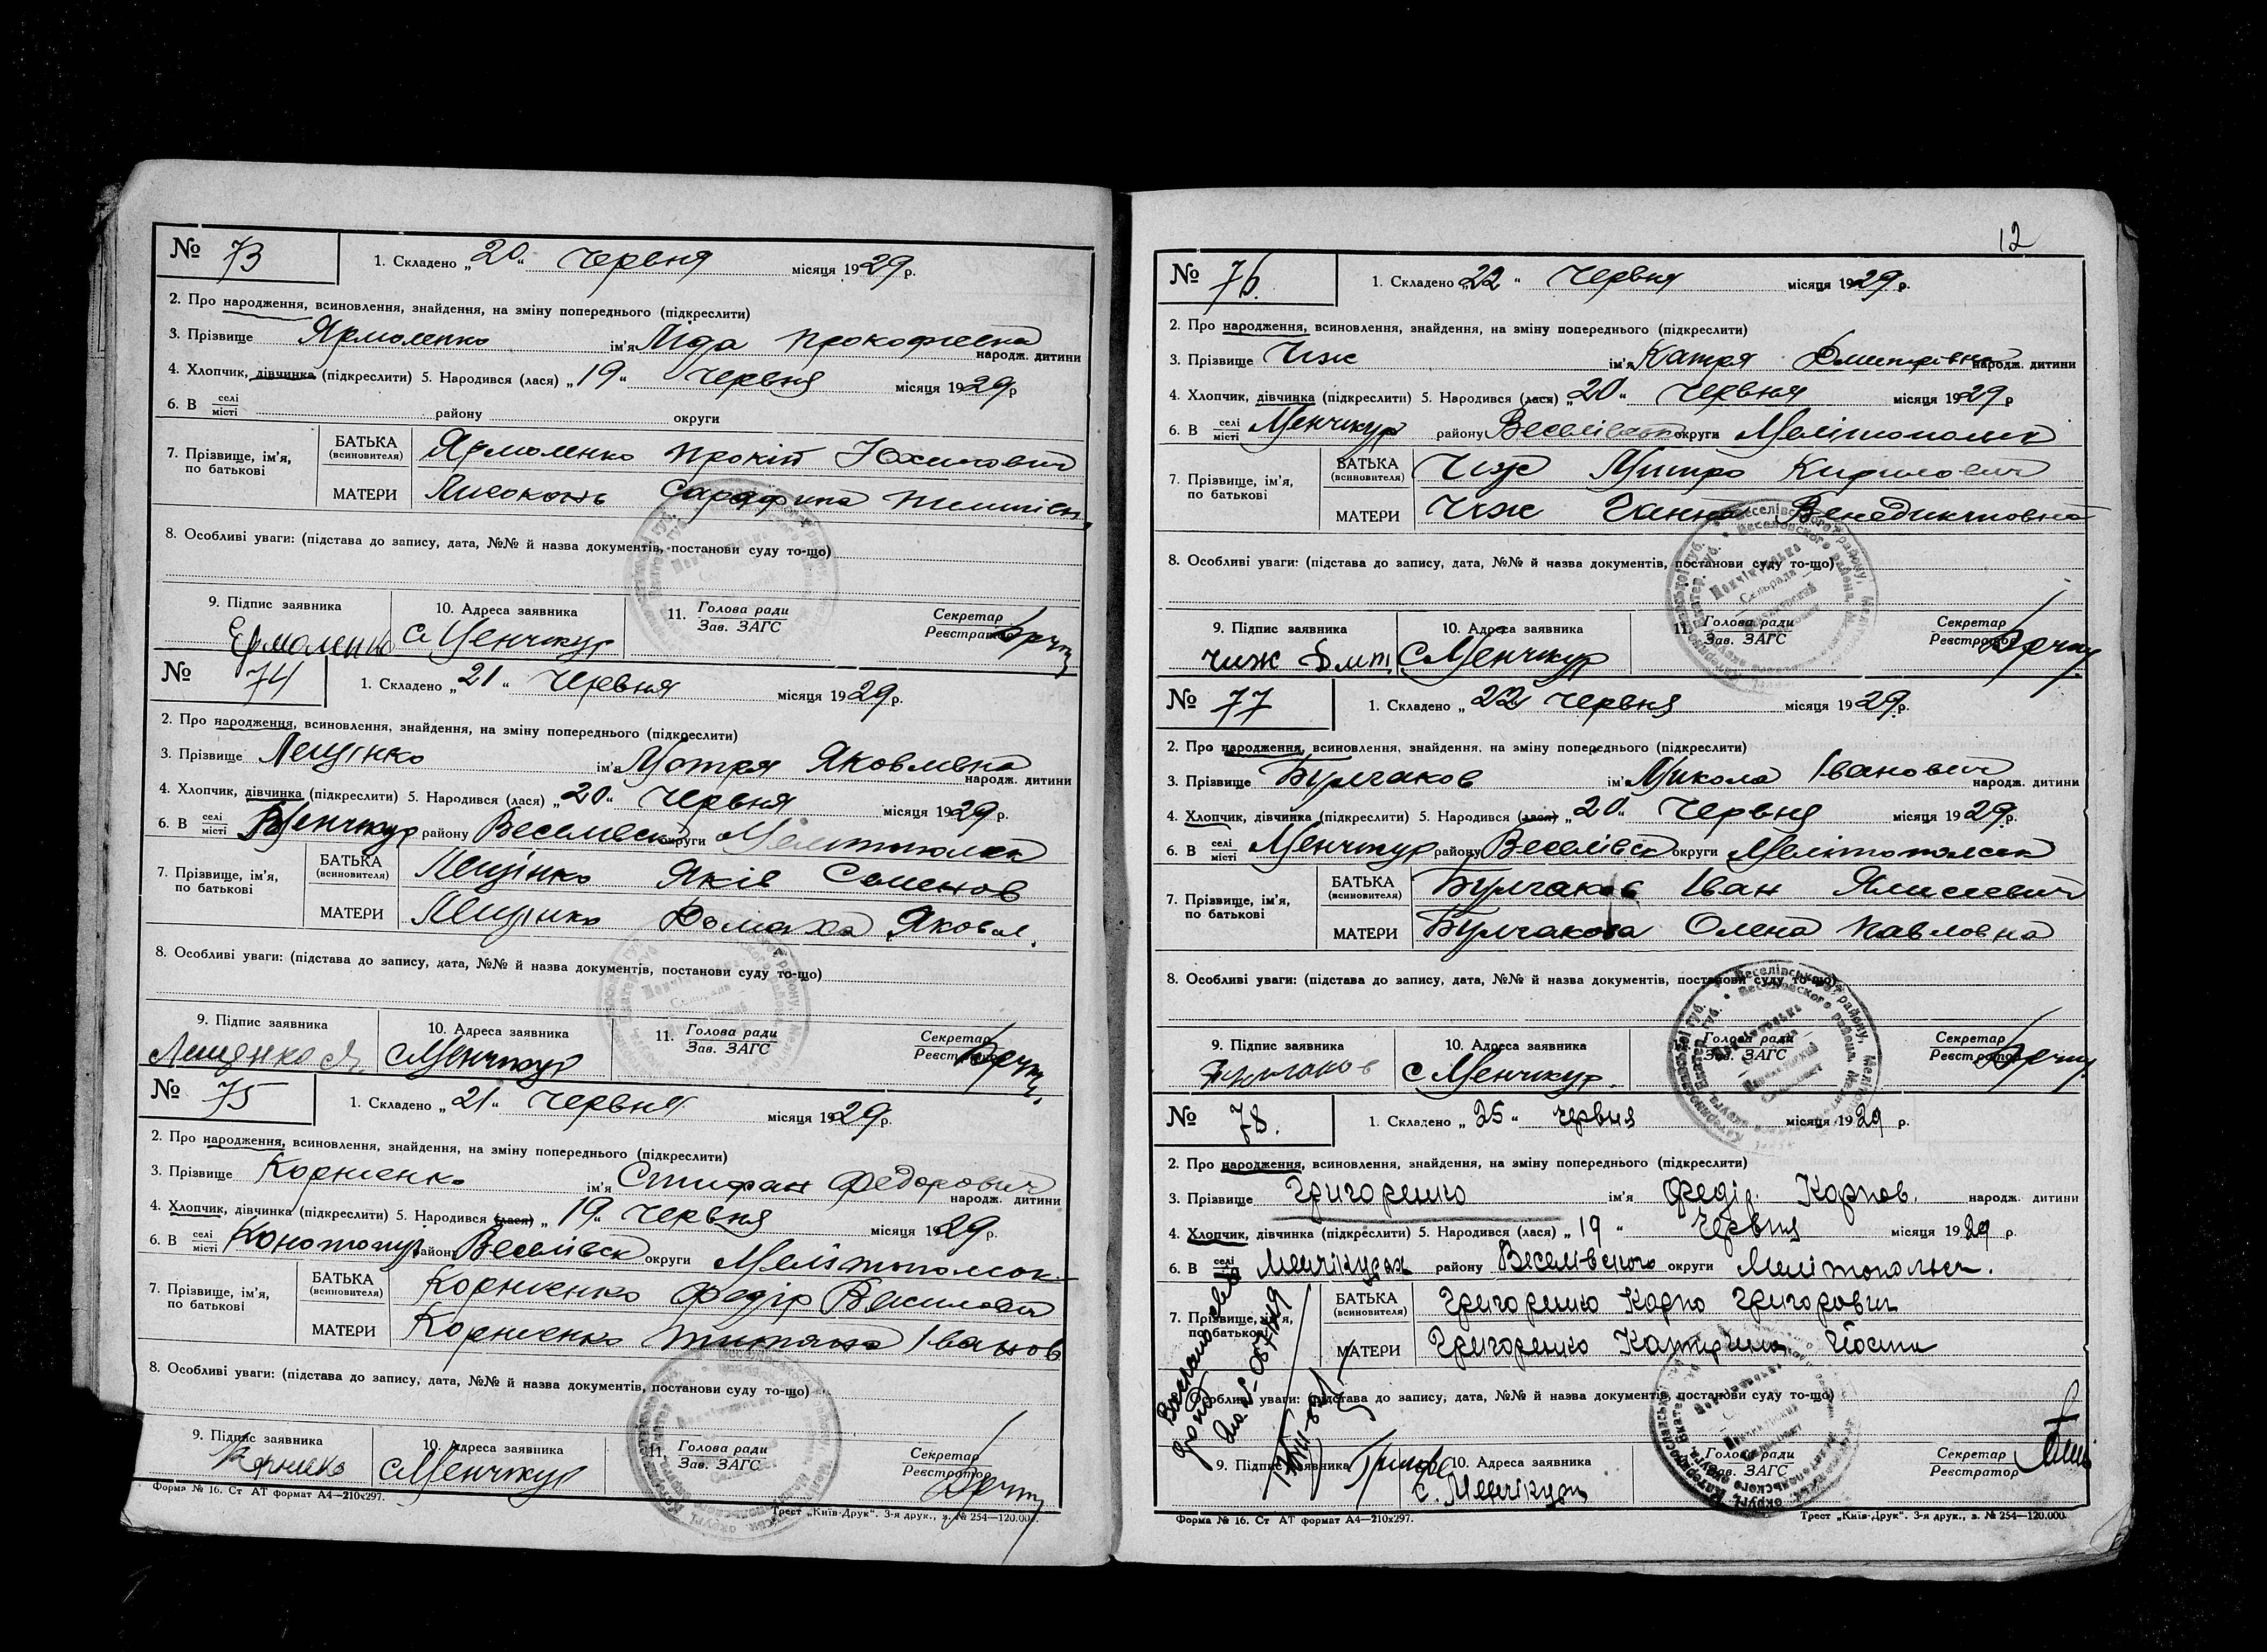 № 73 1. Складено „20“ червня місяця 1929 р.
2. Про народження, всиновлення, знайдення, на зміну попереднього (підкреслити)
3. Прізвище Ярмоленко ім'я Ліда Прокофиевна народж. дитини
4. Хлопчик, дівчинка (підкреслити) 5. Народився (лася) „19“ червня місяця 1929 р
6. В селі місті району округи
7. Прізвище, ім'я, по батькові БАТЬКА (всиновителя) Ярмоленко Прокіп Юхимович
МАТЕРИ
8. Особливі уваги: (підстава до запису, дата, №№ й назва документів, постанови суду то-що)
9. Підпис заявника 10. Адреса заявника 11. Голова ради Зав. ЗАГС Секретар Реєстратор
с Менчикур
№ 74 1. Складено „21“ червня місяця 1929 р.
2. Про народження, всиновлення, знайдення, на зміну попереднього (підкреслити)
3. Прізвище Лещінко ім'я Мотря Яковлевна народж. дитини
4. Хлопчик, дівчинка (підкреслити) 5. Народився (лася) „20“ червня місяця 1929 р.
6. В селі місті Менчикур району округи
7. Прізвище, ім'я, по батькові БАТЬКА (всиновителя) Лещінко Яків Семенов
МАТЕРИ Лещінко Домаха Яковл.
8. Особливі уваги: (підстава до запису, дата, №№ й назва документів, постанови суду то-що)
9. Підпис заявника 10. Адреса заявника 11. Голова ради Зав. ЗАГС Секретар Реєстратор
Лещенко Я. с Менчикур
№ 75 1. Складено „21“ червня місяця 1929 р.
2. Про народження, всиновлення, знайдення, на зміну попереднього (підкреслити)
3. Прізвище Корниенко ім'я Стифан Федорович народж. дитини
4. Хлопчик, дівчинка (підкреслити) 5. Народився (лася) „19“ червня місяця 1929 р.
6. В селі місті району Веселівск округи
7. Прізвище, ім'я, по батькові БАТЬКА (всиновителя) Корниенко Федір Василович
МАТЕРИ Корниенко Іванов
8. Особливі уваги: (підстава до запису, дата, №№ й назва документів, постанови суду то-що)
9. Підпис заявника 10. Адреса заявника 11. Голова ради Зав. ЗАГС Секретар Реєстратор
с Менчикур
Форма № 16. Ст АТ формат А4—210х297. Трест „Київ-Друк“. 3-я друк., з. № 254—120.000.
12
№ 76. 1. Складено „22“ червня місяця 1929 р.
2. Про народження, всиновлення, знайдення, на зміну попереднього (підкреслити)
3. Прізвище Чиж ім'я Катря Дмитрівна народж. дитини
4. Хлопчик, дівчинка (підкреслити) 5. Народився (лася) „20“ червня місяця 1929 р
6. В селі місті Менчикур району округи
7. Прізвище, ім'я, по батькові БАТЬКА (всиновителя) Чиж Митро Кирилович
МАТЕРИ Чиж Ганна Венедиктовна
8. Особливі уваги: (підстава до запису, дата, №№ й назва документів, постанови суду то-що)
9. Підпис заявника 10. Адреса заявника 11. Голова ради Зав. ЗАГС Секретар Реєстратор
Чиж Дмит. с Менчикур
№ 77 1. Складено „22“ червня місяця 1929 р.
2. Про народження, всиновлення, знайдення, на зміну попереднього (підкреслити)
3. Прізвище Булгаков ім'я Микола Іванович народж. дитини
4. Хлопчик, дівчинка (підкреслити) 5. Народився (лася) „20“ червня місяця 1929 р.
6. В селі місті Менчикур району Веселівск округи Мелітопольск
7. Прізвище, ім'я, по батькові БАТЬКА (всиновителя) Булгаков Іван
МАТЕРИ Булгакова Олена Павловна
8. Особливі уваги: (підстава до запису, дата, №№ й назва документів, постанови суду то-що)
9. Підпис заявника 10. Адреса заявника Голова ради Зав. ЗАГС Секретар Реєстратор
с Менчикур.
№ 78. 1. Складено „25“ червня місяця 1929 р.
2. Про народження, всиновлення, знайдення, на зміну попереднього (підкреслити)
3. Прізвище Григоренко ім'я Федір Карпов. народж. дитини
4. Хлопчик, дівчинка (підкреслити) 5. Народився (лася) „19“ червня місяця 1929 р.
6. В селі місті Менчікурах району Веселівского округи
7. Прізвище, ім'я, по батькові БАТЬКА (всиновителя) Григоренко Карпо Григорович
МАТЕРИ Григоренко Катерина
8. Особливі уваги: (підстава до запису, дата, №№ й назва документів, постанови суду то-що)
9. Підпис заявника 10. Адреса заявника Голова ради Зав. ЗАГС Секретар Реєстратор
с. Менчікури
Форма № 16. Ст АТ формат А4—210х297. Трест „Київ-Друк“. 3-я друк., з. № 254—120.000.